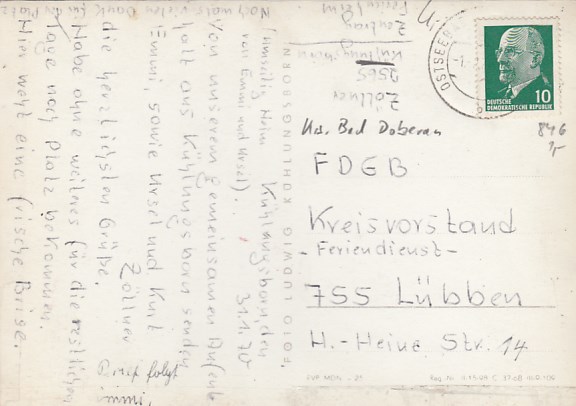 Nochmals vielen Dank für den Platz
Kühlungsborn, den
31.1.70
(umseitig Heim
von Emmi und Ursel).
Von unserem gemeinsamen Aufenth
halt aus Kühlungsborn senden
Emmi, sowie Ursel und Kurt
Zöllner
die herzlichsten Grüße.
Habe ohne weiteres für die restlichen
Tage noch Platz bekommen.
Hier weht eine frische Brise.
Brief folgt
Zöllner
2565
Kühlungsborn
FOTO LUDWIG KÜHLUNGSBORN
OSTSEEB
DEUTSCHE
DEMOKRATISCHE REPUBLIK
10
846
1,-
Krs. Bad Doberan
FDGB
Kreisvorstand
- Feriendienst -
755 Lübben
H.-Heine Str. 14